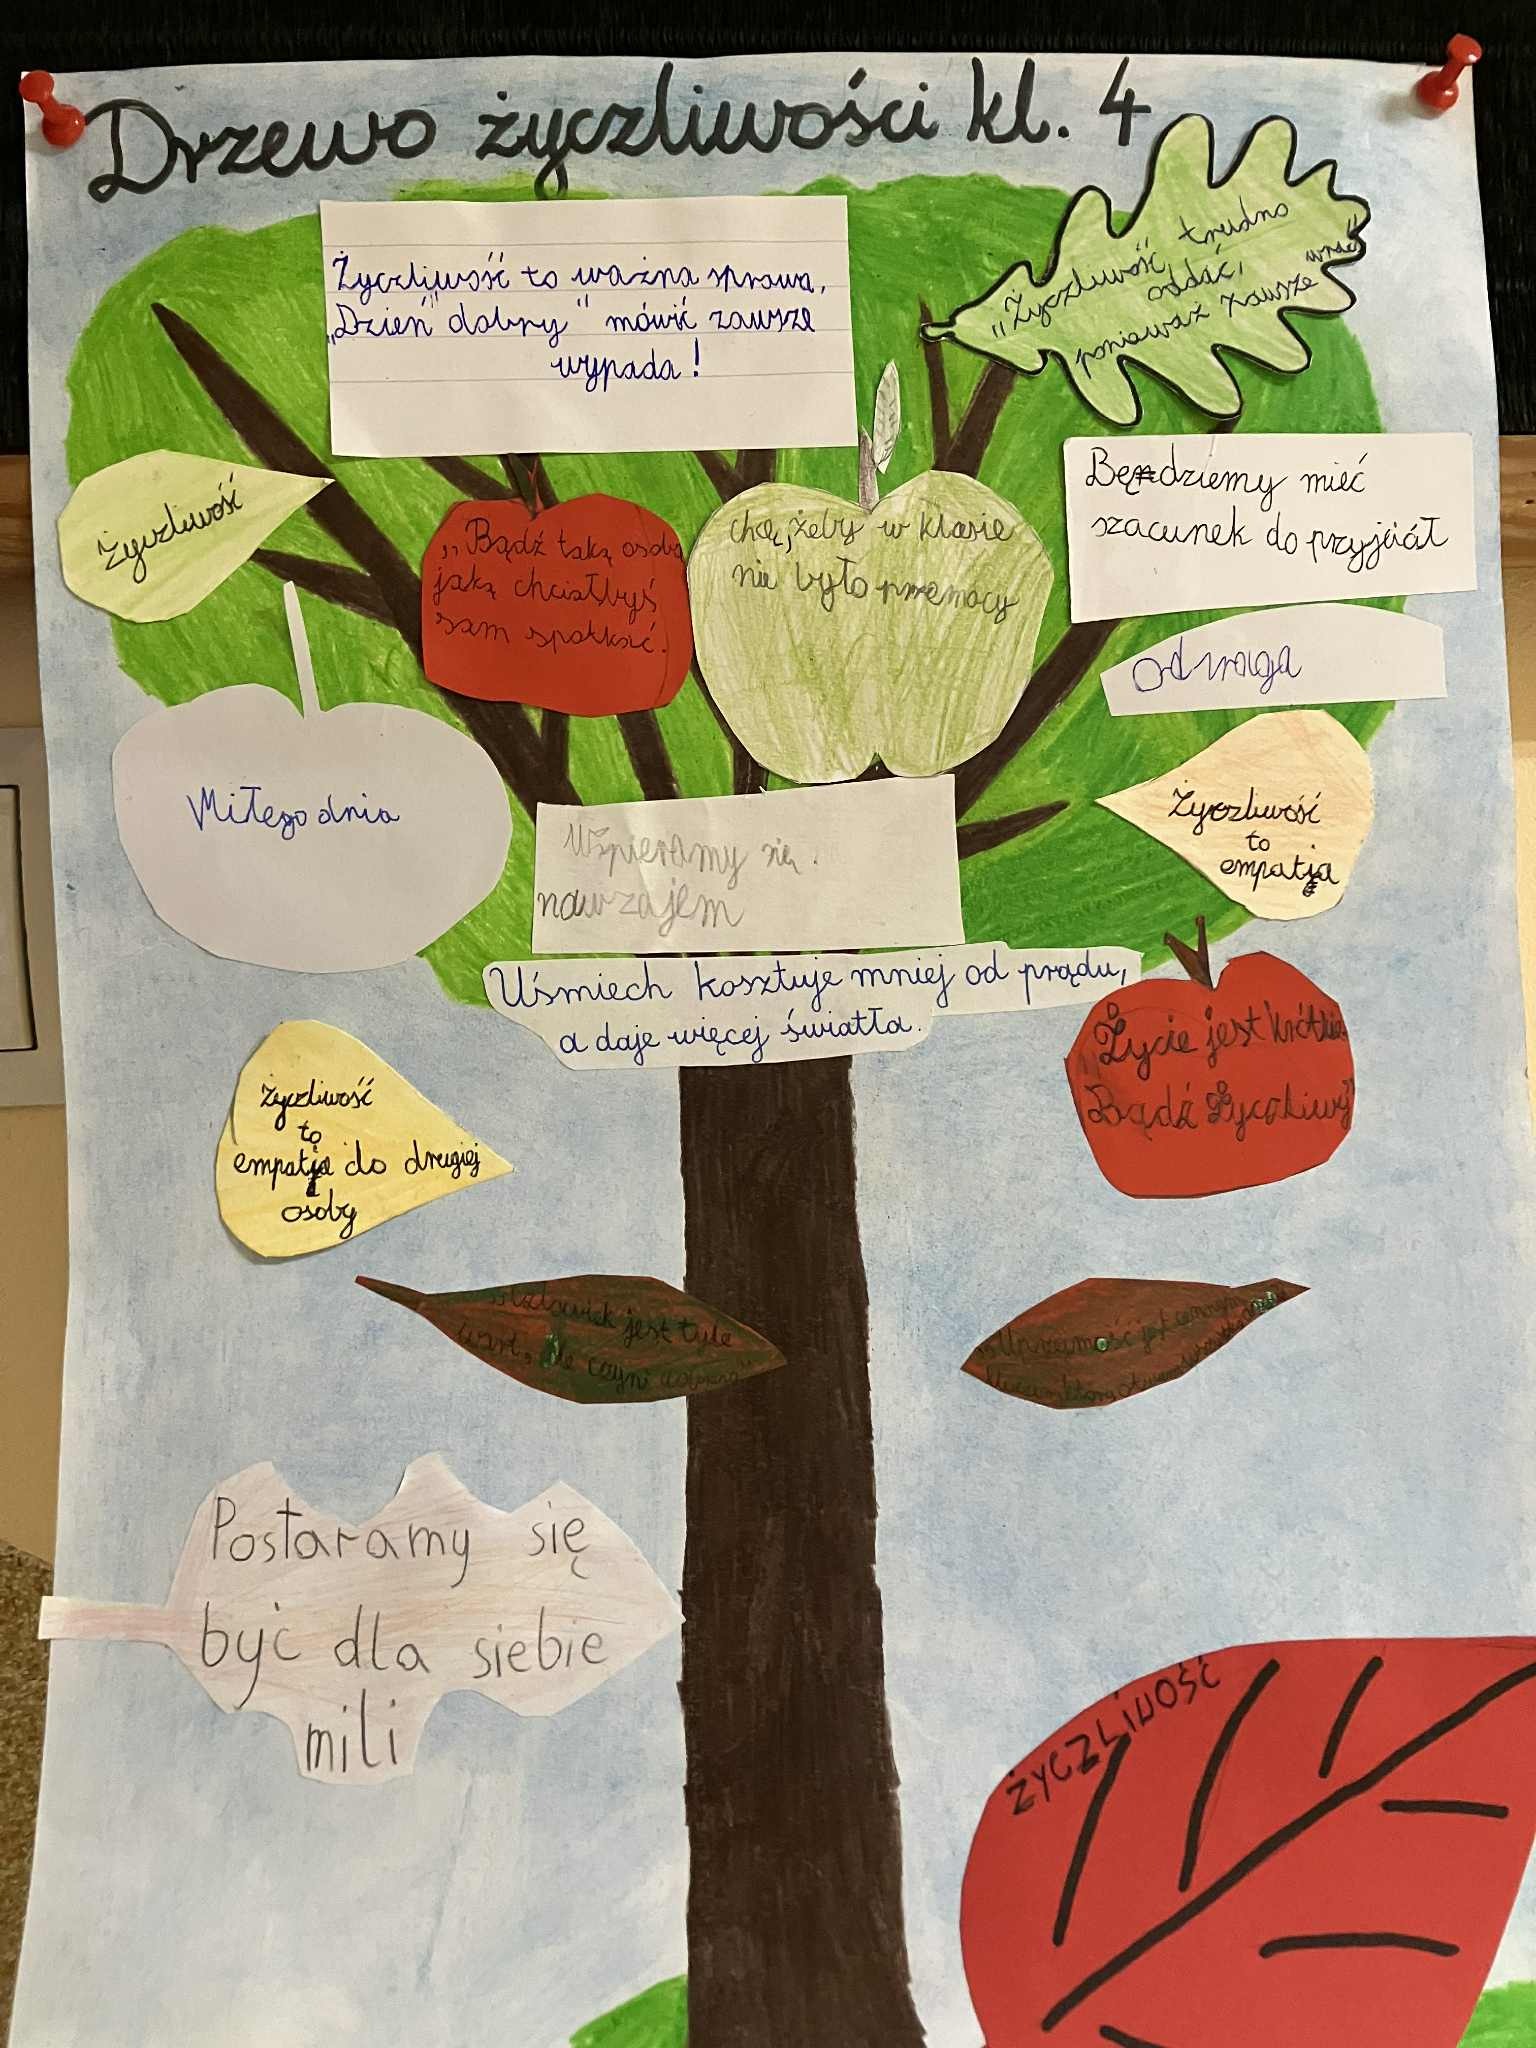 Drzewo życzliwości kl. 4
Życzliwość to ważna sprawa,
„Dzień" dobry" mówić zawsze
wypada!
„Życzliwość trudno
oddać,
ponieważ zawsze wraca"
Życzliwość
„Bądź taką osobą
jaką chciałbyś
sam spotkać.
chcę, żeby w klasie
nie było przemocy
Będziemy mieć
szacunek do przyjciół
odwaga
Miłego dnia
Wspieramy się
nawzajem
Życzliwość
to
empatja
Uśmiech kosztuje mniej od prądu,
a daje więcej światła.
Życzliwość
to
empatja do drugiej
osoby
Życie jest krótkie
Bądź Życzliwy
„Człowiek jest tyle
wart, ile czyni dobrego"
„Uprzejmość jest
Postaramy się
być dla siebie
mili
ŻYCZLIWOŚĆ